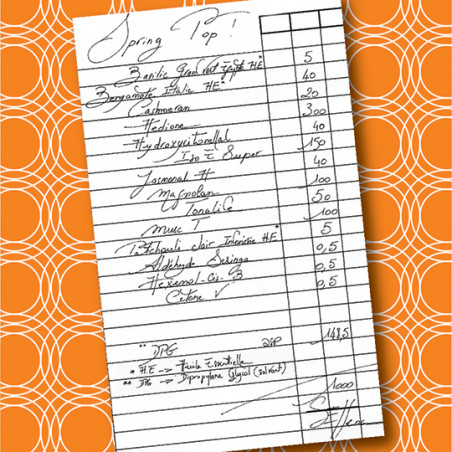 Spring Pop !
Basilic Grand Vert Egypte HE* 5
Bergamote Italie HE* 40
Cashmeran 20
Hédione 300
Hydroxycitronellal 40
Iso E Super 150
Jasmonal H 40
Magnolan 100
Tonalide 50
Musc T 100
Patchouli clair Indonésie HE* 5
Aldéhyde Seringa 0,5
Hexenol-Cis-3 0,5
Cétone V 0,5
** DPG QSP 148,5
* H.E -> Huile Essentielle
** DPG -> Dipropylene Glycol (solvant)
1000